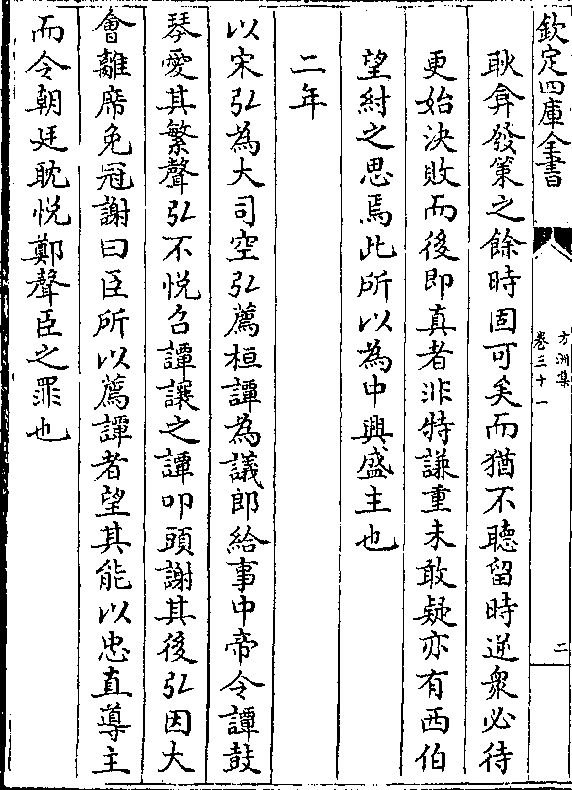 欽定四庫全書
方洲集
卷三十一
二
耿弇發策之餘時固可矣而猶不聽留時逆衆必待
更始決敗而後即真者非特謙重未敢疑亦有西伯
望紂之思焉此所以為中興盛主也
二年
以宋弘為大司空弘薦桓譚為議郎給事中帝令譚鼓
琴愛其繁聲弘不悦召譚讓之譚叩頭謝其後弘因大
會離席免冠謝曰臣所以薦譚者望其能以忠直導主
而令朝廷耽悦鄭聲臣之罪也